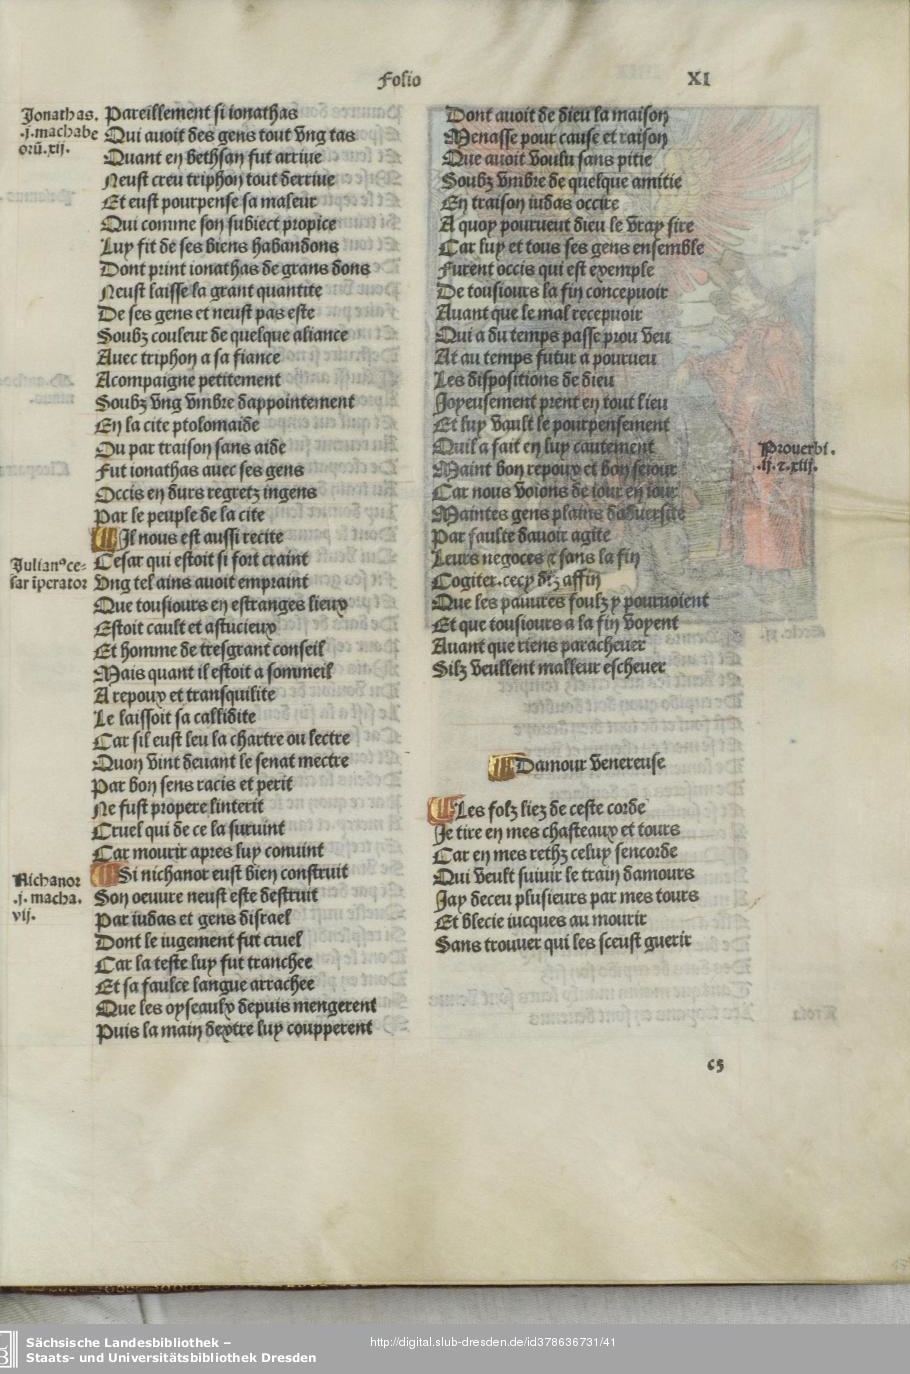 Folio XI
Jonathas.
.j. machabe
orū. xij.
Pareillement si ionathas
Qui auoit des gens tout vng tas
Quant en bethsan fut arriue
Neust creu triphon tout derriue
Et eust pourpense sa maleur
Qui comme son subiect propice
Luy fit de ses biens habandons
Dont print ionathas de grans dons
Neust laisse la grant quantite
De ses gens et neust pas este
Soubz couleur de quelque aliance
Auec triphon a sa fiance
Acompaigne petitement
Soubz vng vmbre dappointement
En la cite ptolomaide
Ou par traison sans aide
Fut ionathas auec ses gens
Occis en durs regretz ingens
Par le peuple de la cite
Julian⁹ ce-
sar īperator
Il nous est aussi recite
Cesar qui estoit si fort craint
Vng tel ains auoit empraint
Que tousiours en estranges lieux
Estoit cault et astucieux
Et homme de tresgrant conseil
Mais quant il estoit a sommeil
A repoux et transquilite
Le laissoit sa callidite
Car sil eust leu la chartre ou lectre
Quon vint deuant le senat mectre
Par bon sens racis et perit
Ne fust propere linterit
Cruel qui de ce la suruint
Car mourir apres luy conuint
Nichanor
.j. macha.
vij.
Si nichanor eust bien construit
Son oeuure neust este destruit
Par iudas et gens disrael
Dont le iugement fut cruel
Car la teste luy fut tranchee
Et sa faulce langue arrachee
Que les oyseaulx depuis mengerent
Puis la main dextre luy coupperent
Dont auoit de dieu la maison
Menasse pour cause et raison
Que auoit voulu sans pitie
Soubz vmbre de quelque amitie
En traison iudas occire
A quoy pourueut dieu le vray sire
Car luy et tous ses gens ensemble
Furent occis qui est exemple
De tousiours la fin concepuoir
Auant que le mal recepuoir
Qui a du temps passe prou veu
At au temps futur a pourueu
Les dispositions de dieu
Joyeusement prent en tout lieu
Et luy vault le pourpensement
Quil a fait en luy cautement
Maint bon repoux et bon seiour
Car nous voions de iour en iour
Maintes gens plains daduersite
Par faulte dauoir agite
Leurs negoces ⁊ sans la fin
Cogiter. cecy dˢz affin
Que les pauures foulz y pouruoient
Et que tousiours a la fin voyent
Auant que riens parachever
Silz veullent malleur escheuer
Prouerbi.
.ij. ⁊. xiij.
Damour venereuse
Les folz liez de ceste corde
Je tire en mes chasteaux et tours
Car en mes rethz celuy sencorde
Qui veult suiuir le train damours
Jay deceu plusieurs par mes tours
Et blecie iucques au mourir
Sans trouuer qui les sceust guerir
c5
Sächsische Landesbibliothek –
Staats- und Universitätsbibliothek Dresden
http://digital.slub-dresden.de/id378636731/41